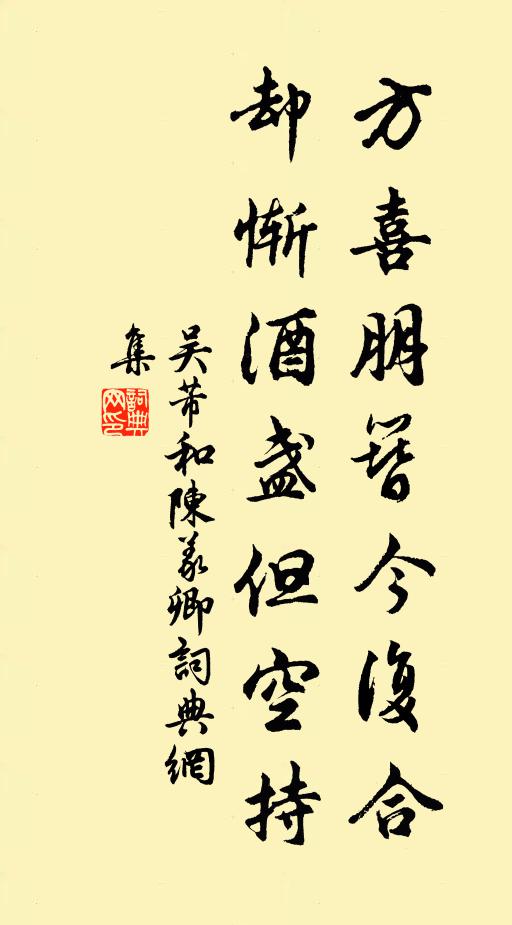 方喜朋簪今復合
却慚酒盞但空持
吴芾和陳羲卿詞典網
集
詞典
网印